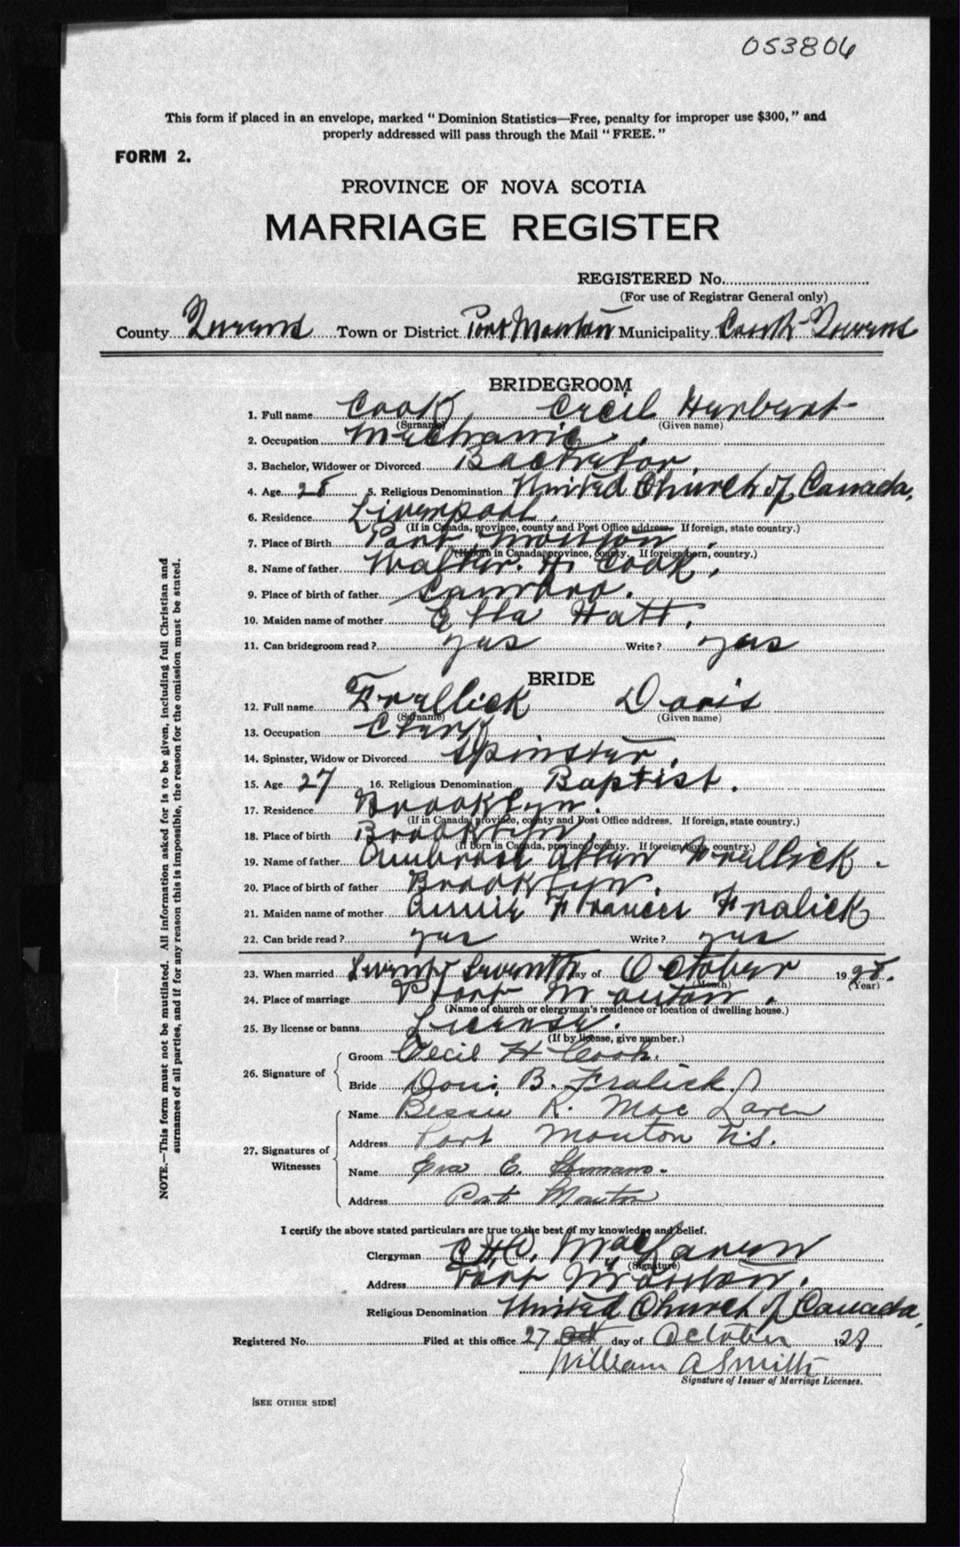 053806
This form if placed in an envelope, marked "Dominion Statistics—Free, penalty for improper use $300," and
properly addressed will pass through the Mail "FREE."
FORM 2.
PROVINCE OF NOVA SCOTIA
MARRIAGE REGISTER
REGISTERED No.
(For use of Registrar General only)
County Queens Town or District Port Mouton Municipality Queens
BRIDEGROOM
1. Full name Cook Cecil Herbert
(Surname) (Given name)
2. Occupation Mechanic
3. Bachelor, Widower or Divorced Bachelor
4. Age 28 5. Religious Denomination United Church of Canada,
6. Residence Liverpool.
(If in Canada, province, county and Post Office address. If foreign, state country.)
7. Place of Birth Port Mouton
(If born in Canada, province, county. If foreign born, country.)
8. Name of father Walter. H. Cook,
9. Place of birth of father Sambro.
10. Maiden name of mother Etta Hatt.
11. Can bridegroom read? yes Write? yes
BRIDE
12. Full name Frallick Doris
(Surname) (Given name)
13. Occupation Clerk
14. Spinster, Widow or Divorced Spinster.
15. Age 27 16. Religious Denomination Baptist.
17. Residence Brooklyn.
(If in Canada, province, county and Post Office address. If foreign, state country.)
18. Place of birth Brooklyn.
(If born in Canada, province, county. If foreign born, country.)
19. Name of father Ambrose Frallick
20. Place of birth of father Brooklyn.
21. Maiden name of mother Annie Frances Fralick
22. Can bride read? yes Write? yes
23. When married Twenty Seventh day of October 1928.
(Month) (Year)
24. Place of marriage Port Mouton.
(Name of church or clergyman's residence or location of dwelling house.)
25. By license or banns License.
(If by license, give number.)
26. Signature of
Groom Cecil H Cook.
Bride Doris B. Fralick
27. Signatures of Witnesses
Name Bessie R. MacLaren
Address Port Mouton N.S.
Name Eva E.
Address Port Mouton
I certify the above stated particulars are true to the best of my knowledge and belief.
Clergyman MacLaren
(Signature)
Address Port Mouton.
Religious Denomination United Church of Canada,
Registered No. Filed at this office 27 day of October 1928
William A Smith
Signature of Issuer of Marriage Licenses.
[SEE OTHER SIDE]
NOTE.—This form must not be mutilated. All information asked for is to be given, including full Christian and
surnames of all parties, and if for any reason this is impossible, the reason for the omission must be stated.